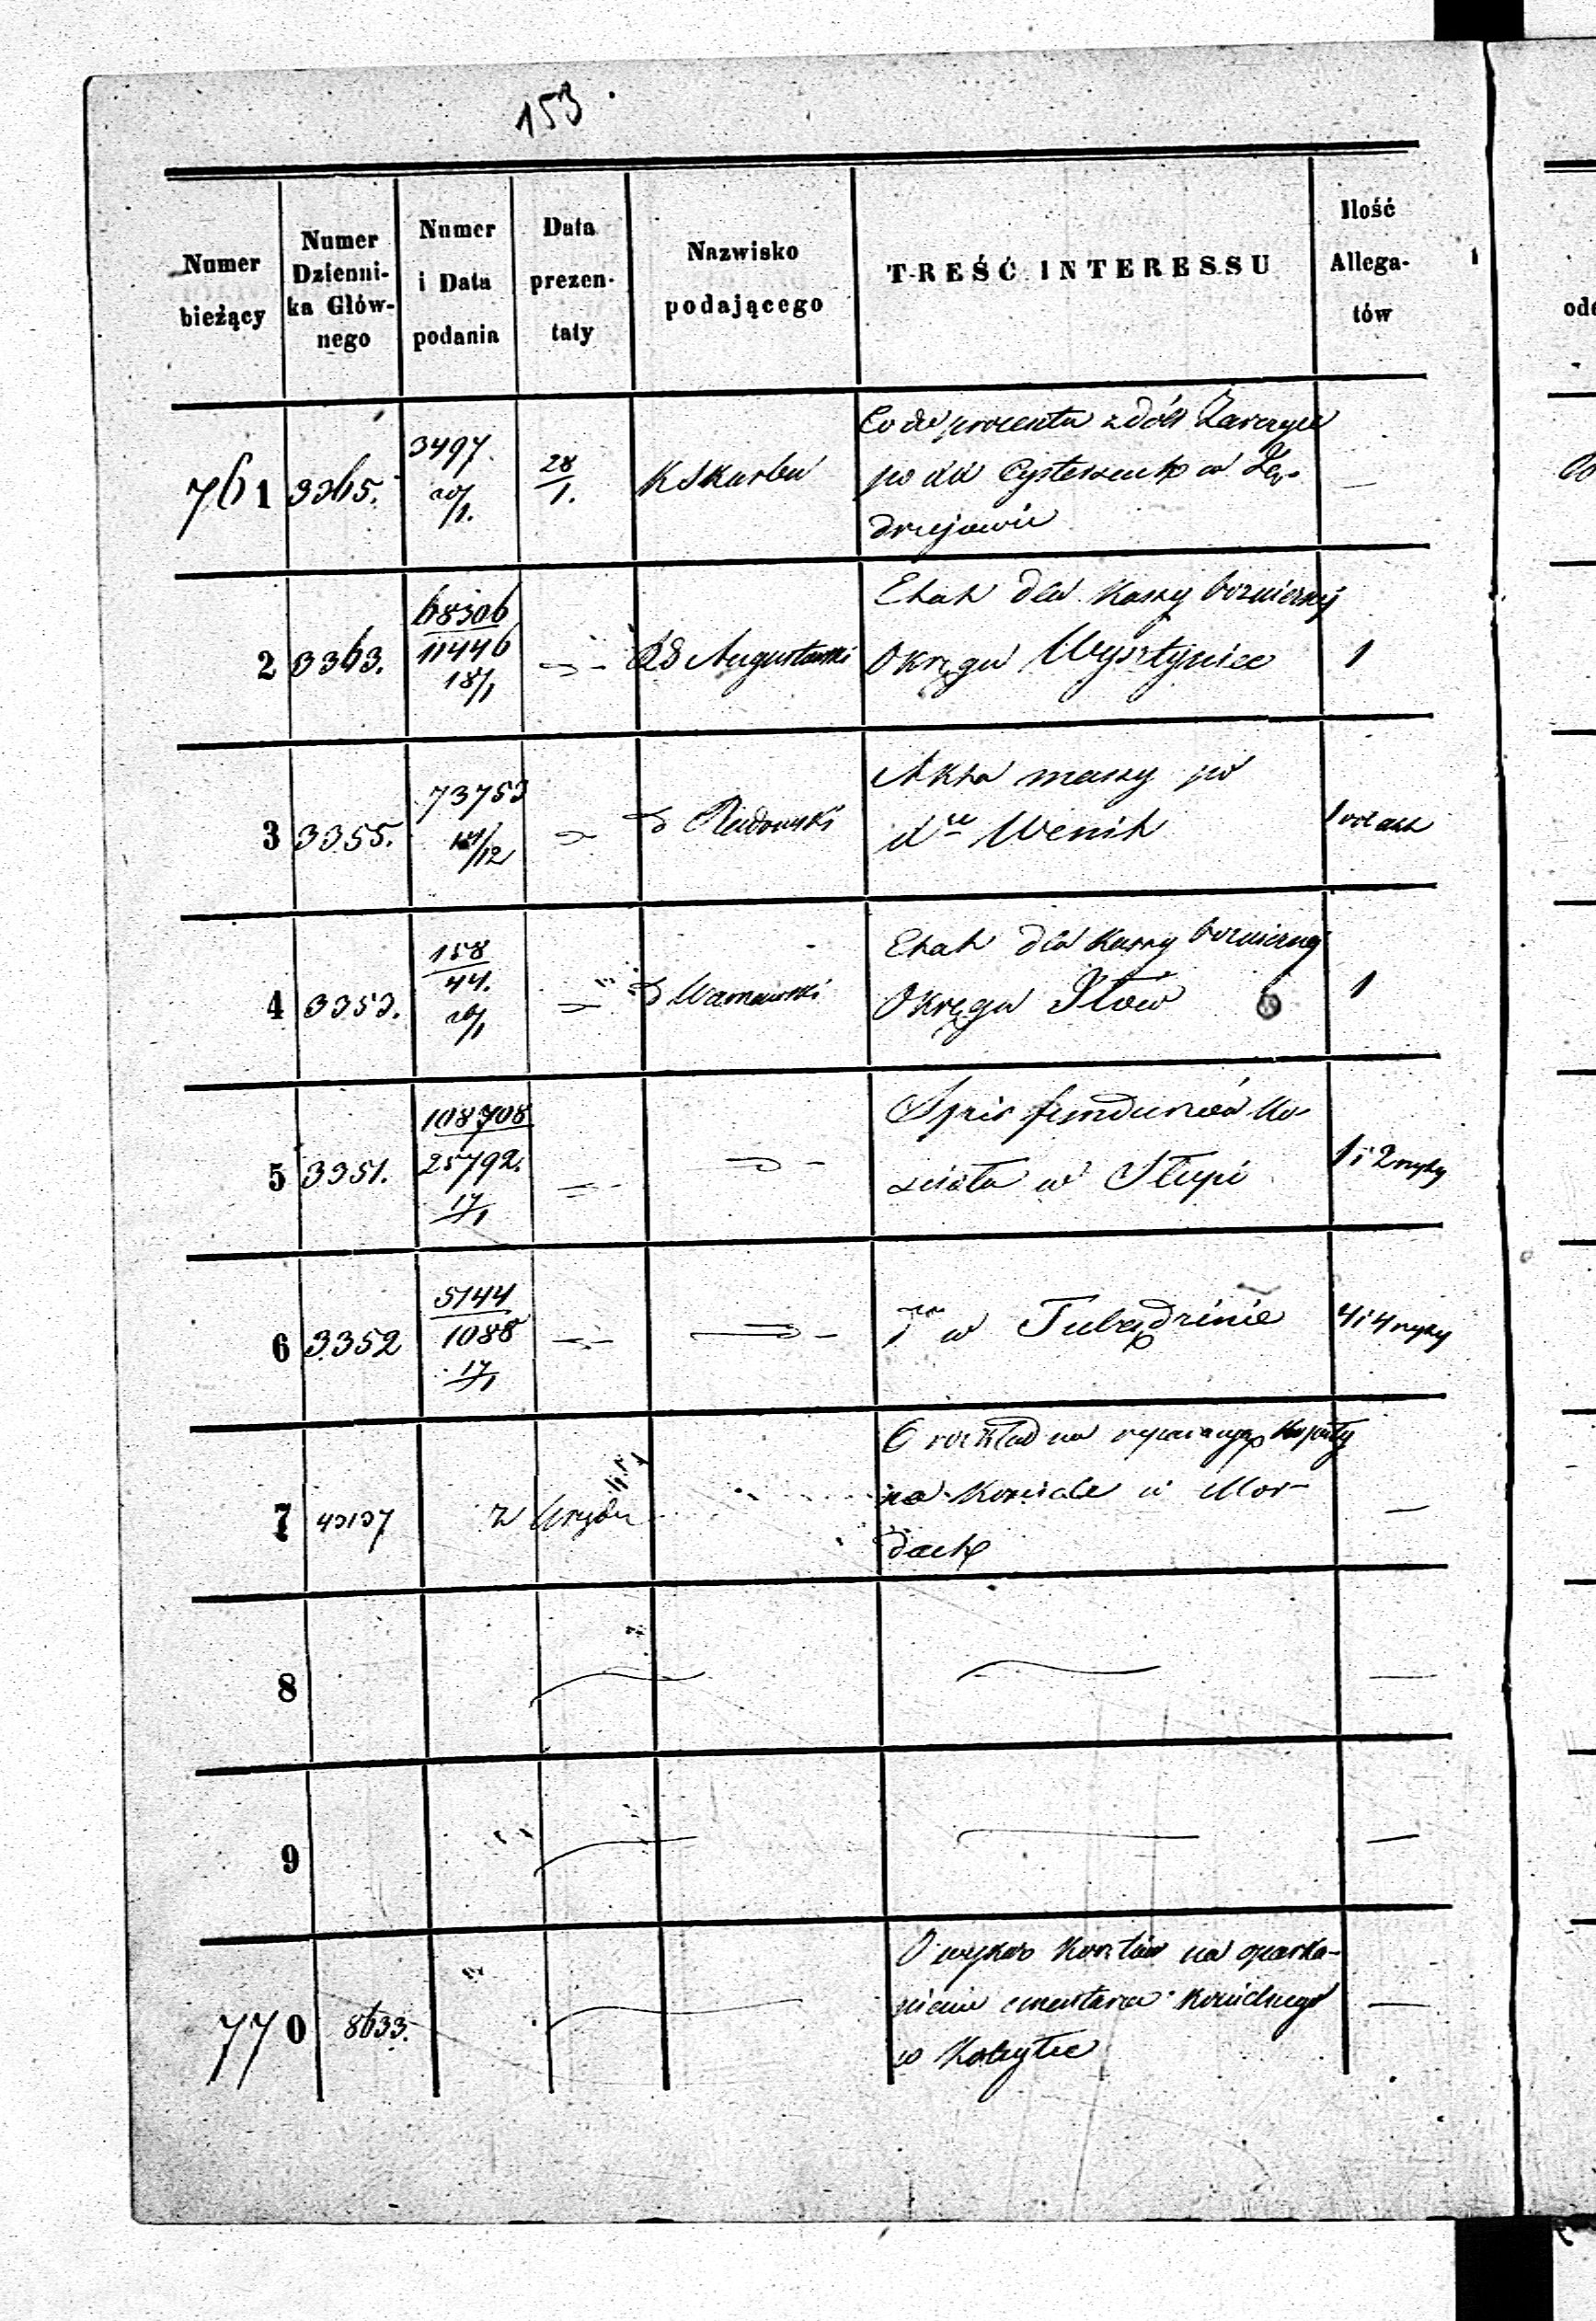 153.
Numer
bieżący
Numer
Dzienni-
ka Głów-
nego
Numer
i Data
podania
Data
prezen-
taty
Nazwisko
podającego
TREŚĆ INTERESSU
Ilość
Allega-
tów
761
3365.
3497.
20/1.
28/1.
K Skarbu
Co do procentu z dóbr
po XX Cystersach w Ję-
drzejowie
2
3363.
68306
11446
18/1
Rd Augustowski
Etat dla Kassy bożniczej
Okręgu Wysztyniec
1
3
3355.
73753
/12
d Radomski
Akta massy po
Wenik
4
3353.
158
44.
20/1
d Warszawski
Etat dla Kassy bożniczej
Okręgu Iłow
1
5
3351.
108708
25792.
17/1
Spis funduszów ko-
ścioła w Słupi
1 i 2
6
3352
5144
1088
17/1
w Tubądzinie
4 i 4
7
43137
z Urzędu
O rozkład na reparacyą kopuły
na kościele w Mor-
dach
8
9
770
8633.
O wykaz kosztów na oparka-
nienie cmentarza kościelnego
w Kobyłce